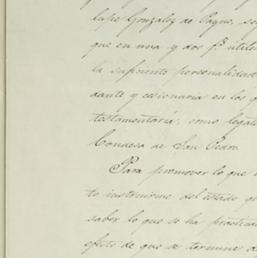 lupe Gonzalez de Pague, se
que en una y dos fs utiles
la suficiente personalidad
dante y cesionaria en los
testamentaria, como legat
Condesa de San Pedro
Para promover lo que
to instruirme del estado q
saber lo que se ha practica
efeto de que se termine a